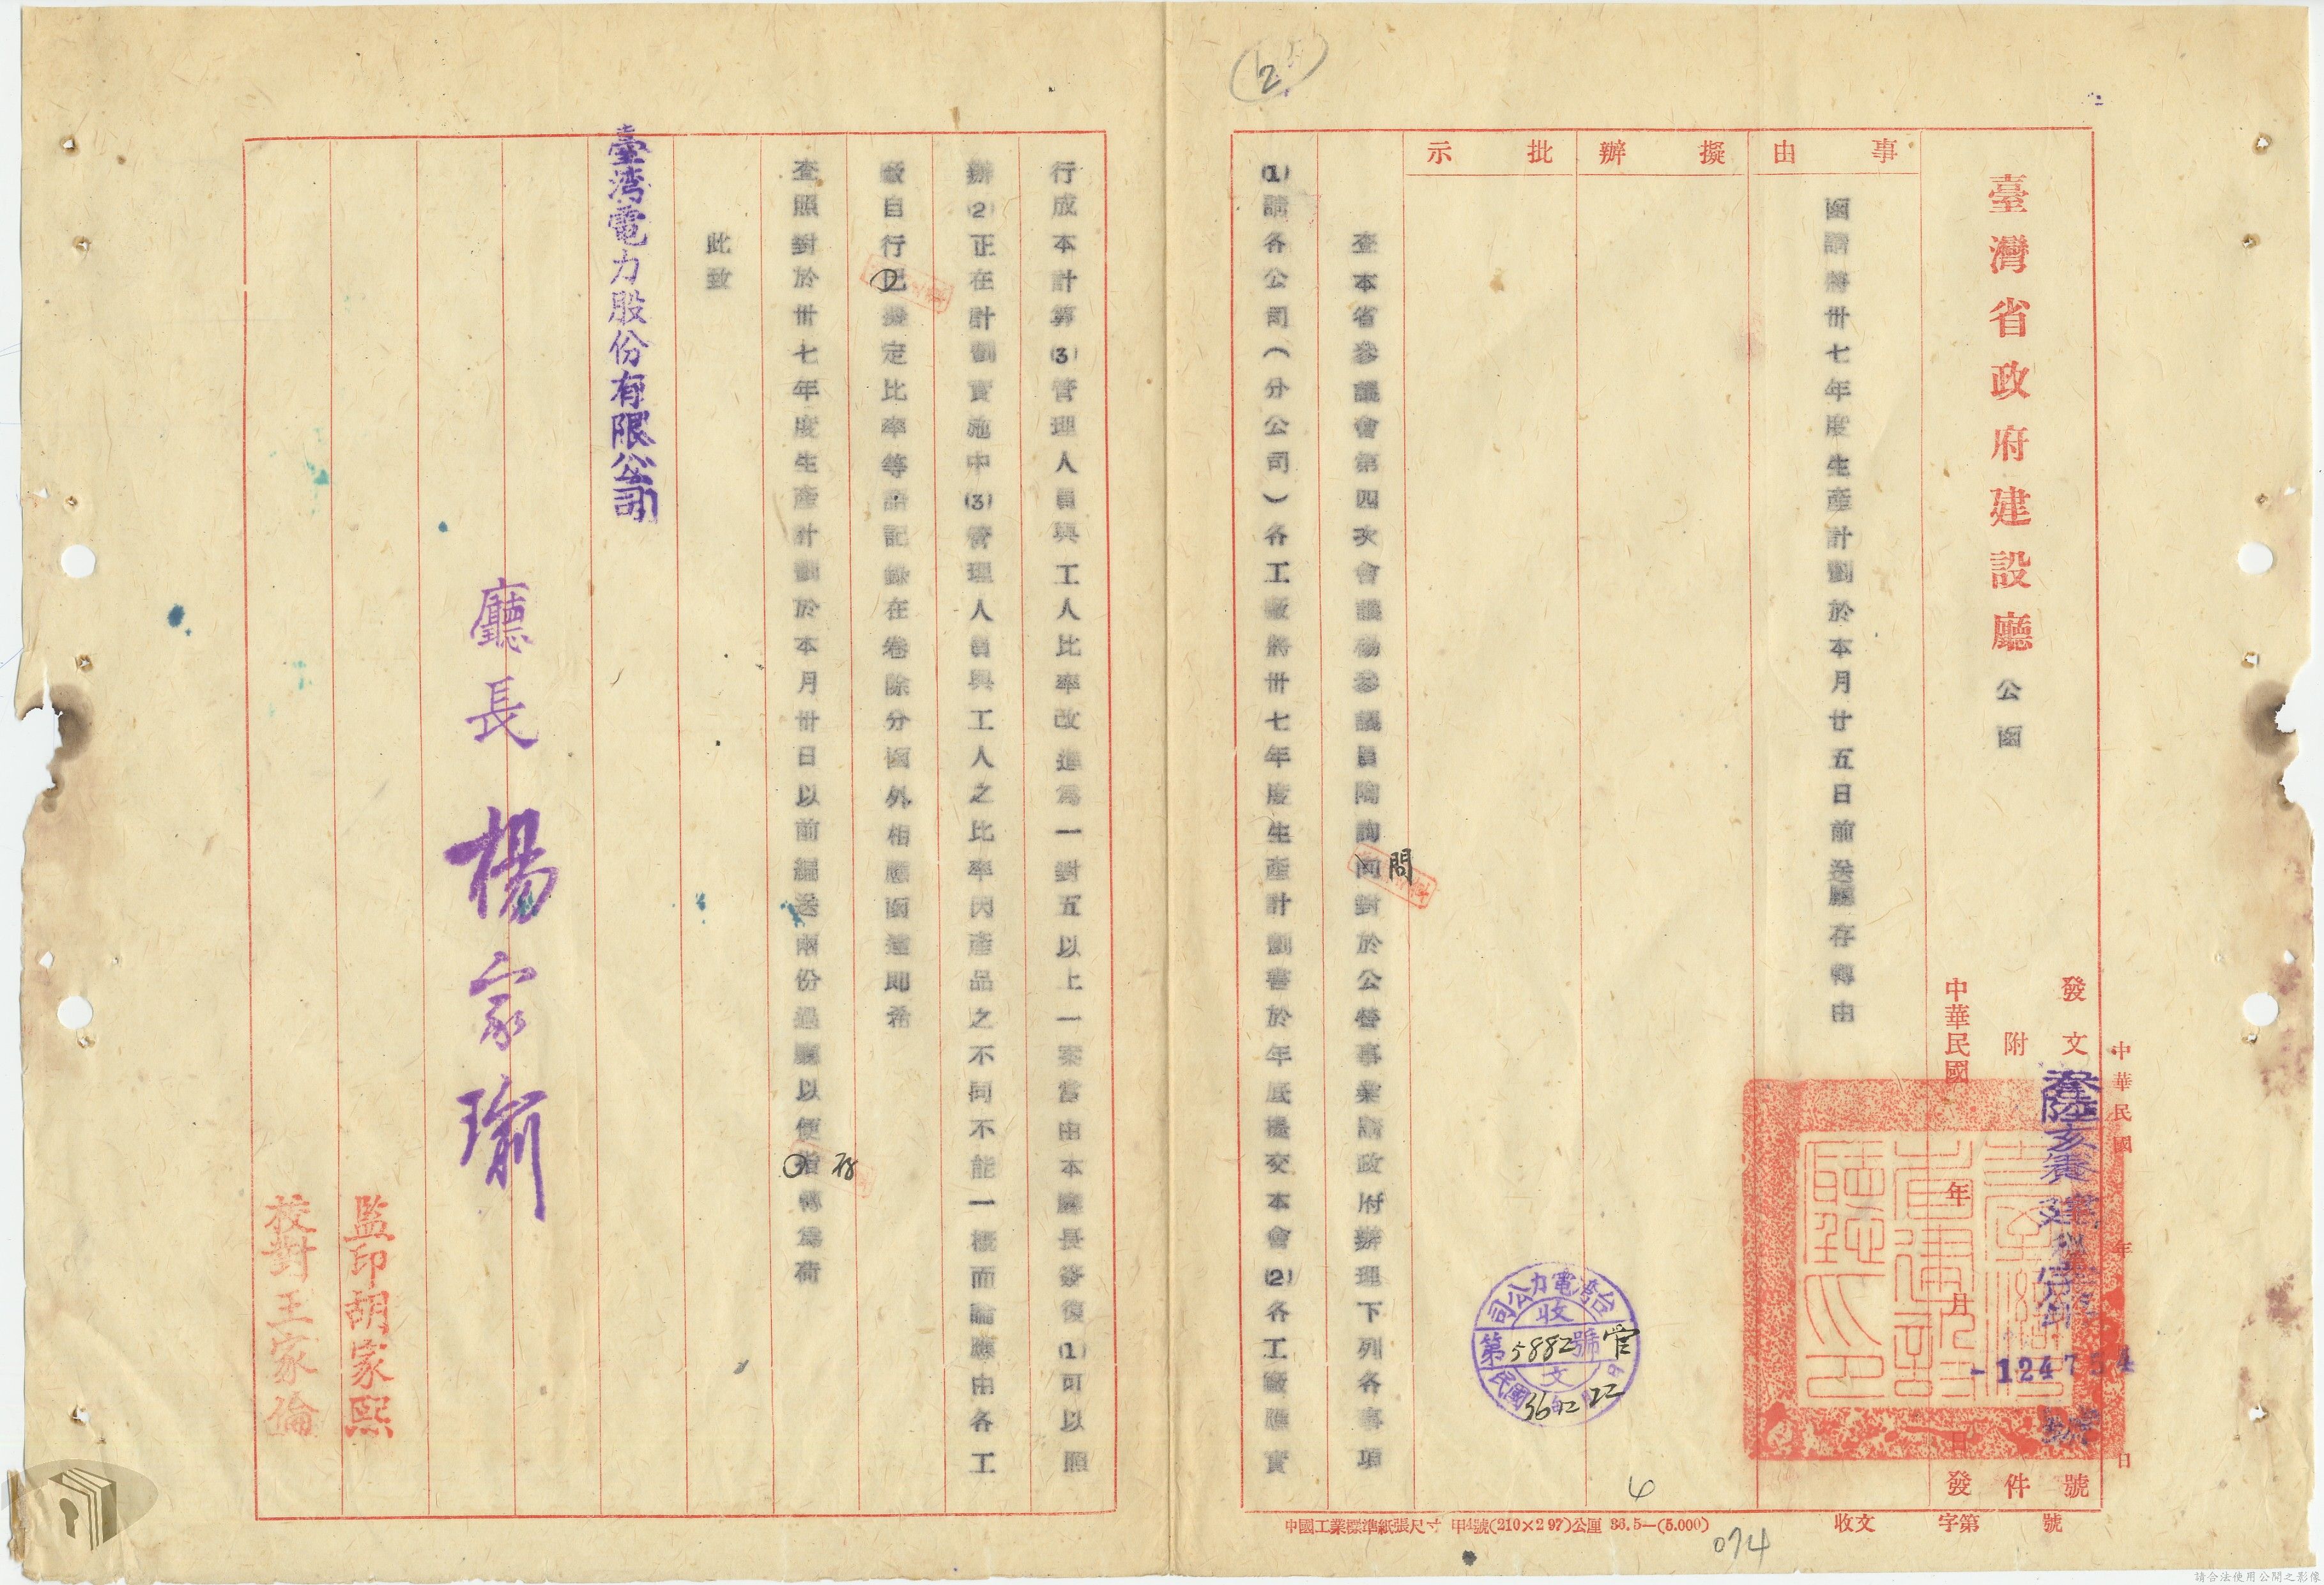 臺灣省政府建設廳 公函
中華民國 年 月 日
發文 號
叁陸亥養建
-124754
號
附 件
中華民國 年 月 日 發
收文 字第 號
事由
函請將卅七年度生產計劃於本月廿五日前送廳存轉由
擬辦
批示
查本省參議會第四次會議楊參議員陶詢問對於公營事業請政府辦理下列各事項
(1)請各公司(分公司)各工廠將卅七年度生產計劃書於年底提交本會(2)各工廠應實
行成本計算(3)管理人員與工人比率改進為一對五以上一案當由本廳長答復(1)可以照
辦(2)正在計劃實施中(3)管理人員與工人之比率因產品之不同不能一概而論應由各工
廠自行擬定比率等語記錄在卷除分函外相應函達即希
查照對於卅七年度生產計劃於本月卅日以前編送兩份過廳以便存轉為荷
此致
臺湾電力股份有限公司
廳長 楊家瑜
監印胡家熙
校對王家倫
台湾電力公司
收
第5882號
文
民國36年12 22
2
6
074
中國工業標準紙張尺寸 甲4號(210×297)公厘 36.5—(5.000)
請合法使用公開之影像